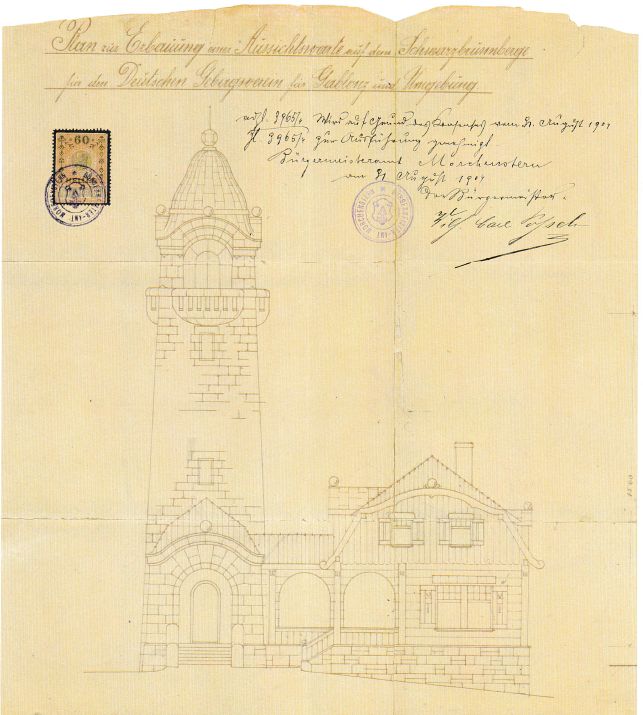 Plan zur Erbauung einer Aussichtswarte auf dem Schwarzbrunnberge
für den Deutschen Gebirgsverein für Gablonz und Umgebung
60
adZl. 3965/1. Wird auf Grund des Konsenses vom 31. August 1901
Zl. 3965/1 zur Ausführung genehmigt
Bürgermeisteramt Morchenstern
am 31 August 1901
Der Bürgermeister.
Carl